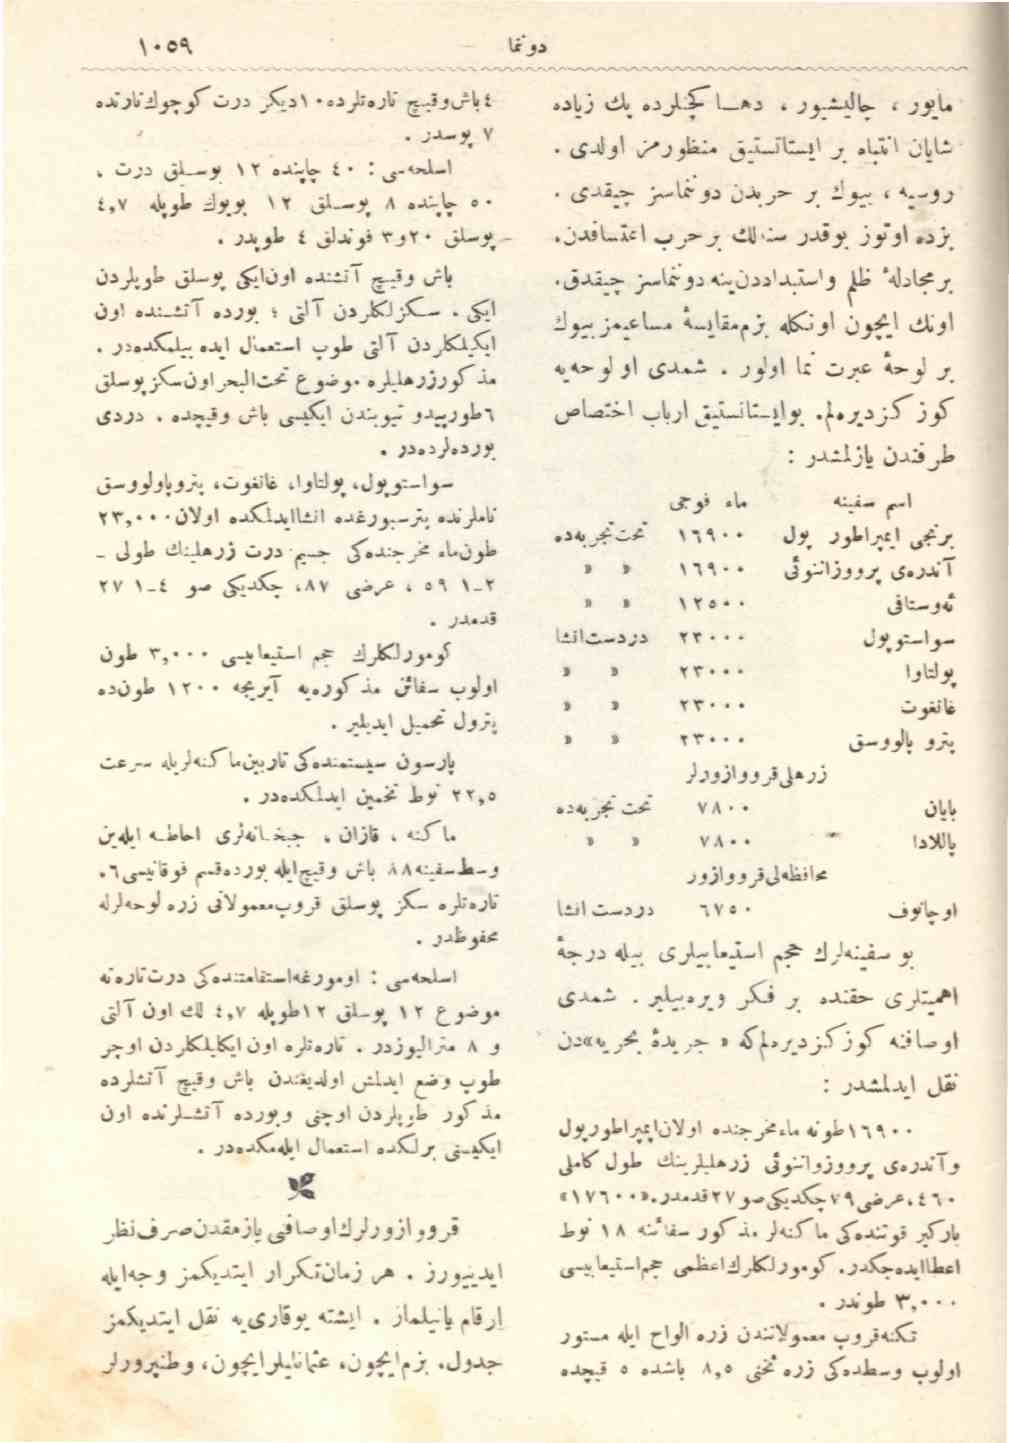 دوننما
١٠٥٩
مايور ، چاليشيور . دهــا كچنلرده پك زياده
شايان انتباه بر ايستاتستيق منظورمز اولدى .
روسيه ، بيوك بر حربدن دوننماسز چيقدى .
بزده اوتوز بوقدر سنه‌لك بر حرب اعتسافدن،
بر مجادلهٔ ظلم واستبداددن ينه دوننماسز چيقدق.
اونك ايچون اونكله بزم مقايسهٔ مساعيمز بيوك
بر لوحهٔ عبرت نما اولور . شمدى او لوحه‌يه
كوز كزديره‌لم. بو ايستاتستيق ارباب اختصاص
طرفندن يازلمشدر :
اسم سفينه ماء فوجى
برنجى ايمپراطور پول ١٦٩٠٠ تحت تجربه‌ده
آندره‌ى پرووزاننوئى ١٦٩٠٠ » »
ئه‌وستافى ١٢٥٠٠ » »
سواستوپول ٢٣٠٠٠ دردست انشا
پولتاوا ٢٣٠٠٠ » »
غانغوت ٢٣٠٠٠ » »
پترو پالووسق ٢٣٠٠٠ » »
زرهلى قرووازورلر
بايان ٧٨٠٠ تحت تجربه‌ده
پاللادا ٧٨٠٠ » »
محافظه‌لى قرووازور
اوچاتوف ٦٧٥٠ دردست انشا
بو سفينه‌لرك حجم استيعابيلرى بيله درجهٔ
اهميتلرى حقنده بر فكر ويره‌بيلير . شمدى
اوصافنه كوز كزديره‌لم كه « جريدهٔ بحريه»دن
نقل ايدلمشدر :
١٦٩٠٠ طونه ماء مخرجنده اولان ايمپراطور پول
وآندره‌ى پرووزواننوئى زرهليلرينك طول كاملى
٤٦٠، عرضى ٧٩ چكديكى صو ٢٧ قدمدر. «١٧٦٠٠»
باركير قوتنده‌كى ماكنه‌لر مذكور سفائنه ١٨ نوط
اعطا ايده‌جكدر. كومورلكلرك اعظمى حجم استيعابيسى
٣,٠٠٠ طوندر .
تكنه قروپ معمولاتندن زره الواح ايله مستور
اولوب وسطده‌كى زره ثخنى ٨,٥ باشده ٥ قيچده
٤ باش وقيچ تاره‌تلرده ١٠ ديكر درت كوچوك تارتده
٧ پوسدر .
اسلحه‌سى : ٤٠ چاپنده ١٢ پوسـلق درت ،
٥٠ چاپنده ٨ پوسـلق ١٢ بويوك طوپله ٤,٧
پوسلق ٢٠ و٣ فوندلق ٤ طوپدر .
باش وقيچ آتشنده اون‌ايكى پوسلق طوپلردن
ايكى . سـكزلكلردن آلتى ؛ بورده آتشـنده اون
ايكيلكلردن آلتى طوپ استعمال ايده بيلمكده‌در .
مذكور زرهليلره موضوع تحت‌البحر اون سكز پوسلق
٦ طورپيدو تيوبندن ايكيسى باش وقيچده . دردى
بورده‌لرده‌در .
سواستوپول، پولتاوا، غانغوت، پتروپاولووسق
ناملرنده پترسبورغده انشا ايدلمكده اولان ٢٣,٠٠٠
طون ماء مخرجنده‌كى جسيم درت زرهلينك طولى ـ
٢ـ١ ٥٩ ، عرضى ٨٧، چكديكى صو ٤ـ١ ٢٧
قدمدر .
كومورلكلرك حجم استيعابيسى ٣,٠٠٠ طون
اولوب سفائن مذكوره‌يه آيريجه ١٢٠٠ طون‌ده
پترول تحميل ايديلير .
پارسون سيستمنده‌كى تاربين ماكنه‌لريله سرعت
٢٢,٥ نوط تخمين ايدلمكده‌در .
ماكنه ، قازان ، جبخـانه‌لرى احاطـه ايله‌ين
وسط سفينه ٨٨ باش وقيچ ايله بورده قسم فوقانيسى ٦،
تاره‌تلره سكز پوسلق قروپ معمولاتى زره لوحه‌لرله
محفوظدر .
اسلحه‌سى : اومورغه استقامتنده‌كى درت تاره‌ته
موضوع ١٢ پوسلق ١٢ طوپله ٤,٧ لك اون آلتى
و ٨ متراليوزدر . تاره‌تلره اون ايكيلكلردن اوچر
طوپ وضع ايدلمش اولديغندن باش وقيچ آتشلرده
مذكور طوپلردن اوچنى وبورده آتشـلرنده اون
ايكيسنى برلكده استعمال ايله‌مكده‌در .
قرووازورلرك اوصافنى يازمقدن صرف نظر
ايدييورز . هر زمان تكرار ايتديكمز وجه‌ايله
ارقام يانيلماز . ايشته يوقارى‌يه نقل ايتديكمز
جدول. بزم ايچون، عثمانليلر ايچون، وطنپرورلر